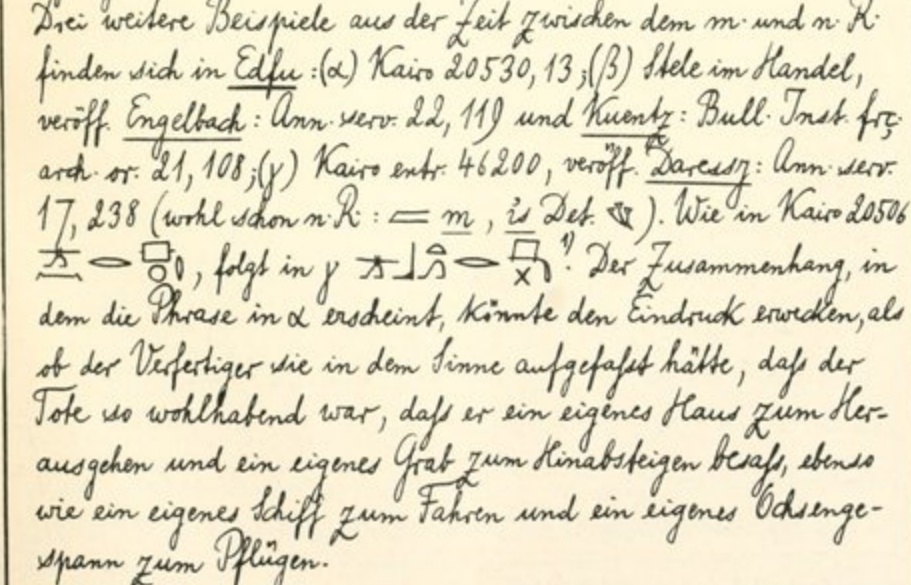 Drei weitere Beispiele aus der Zeit zwischen dem m. und n. R.
finden sich in Edfu: (α) Kairo 20530,13; (β) Stele im Handel,
veröff. Engelbach: Ann. serv. 22, 119 und Kuentz: Bull. Inst. frç.
arch. or. 21, 108; (γ) Kairo entr. 46200, veröff. Daressy: Ann. serv.
17, 238 (wohl schon n. R.: m, is Det. ). Wie in Kairo 20506
, folgt in γ 1). Der Zusammenhang, in
dem die Phrase in α erscheint, könnte den Eindruck erwecken, als
ob der Verfertiger sie in dem Sinne aufgefaßt hätte, daß der
Tote so wohlhabend war, daß er ein eigenes Haus zum Her-
ausgehen und ein eigenes Grab zum Hinabsteigen besaß, ebenso
wie ein eigenes Schiff zum Fahren und ein eigenes Ochsenge-
spann zum Pflügen.